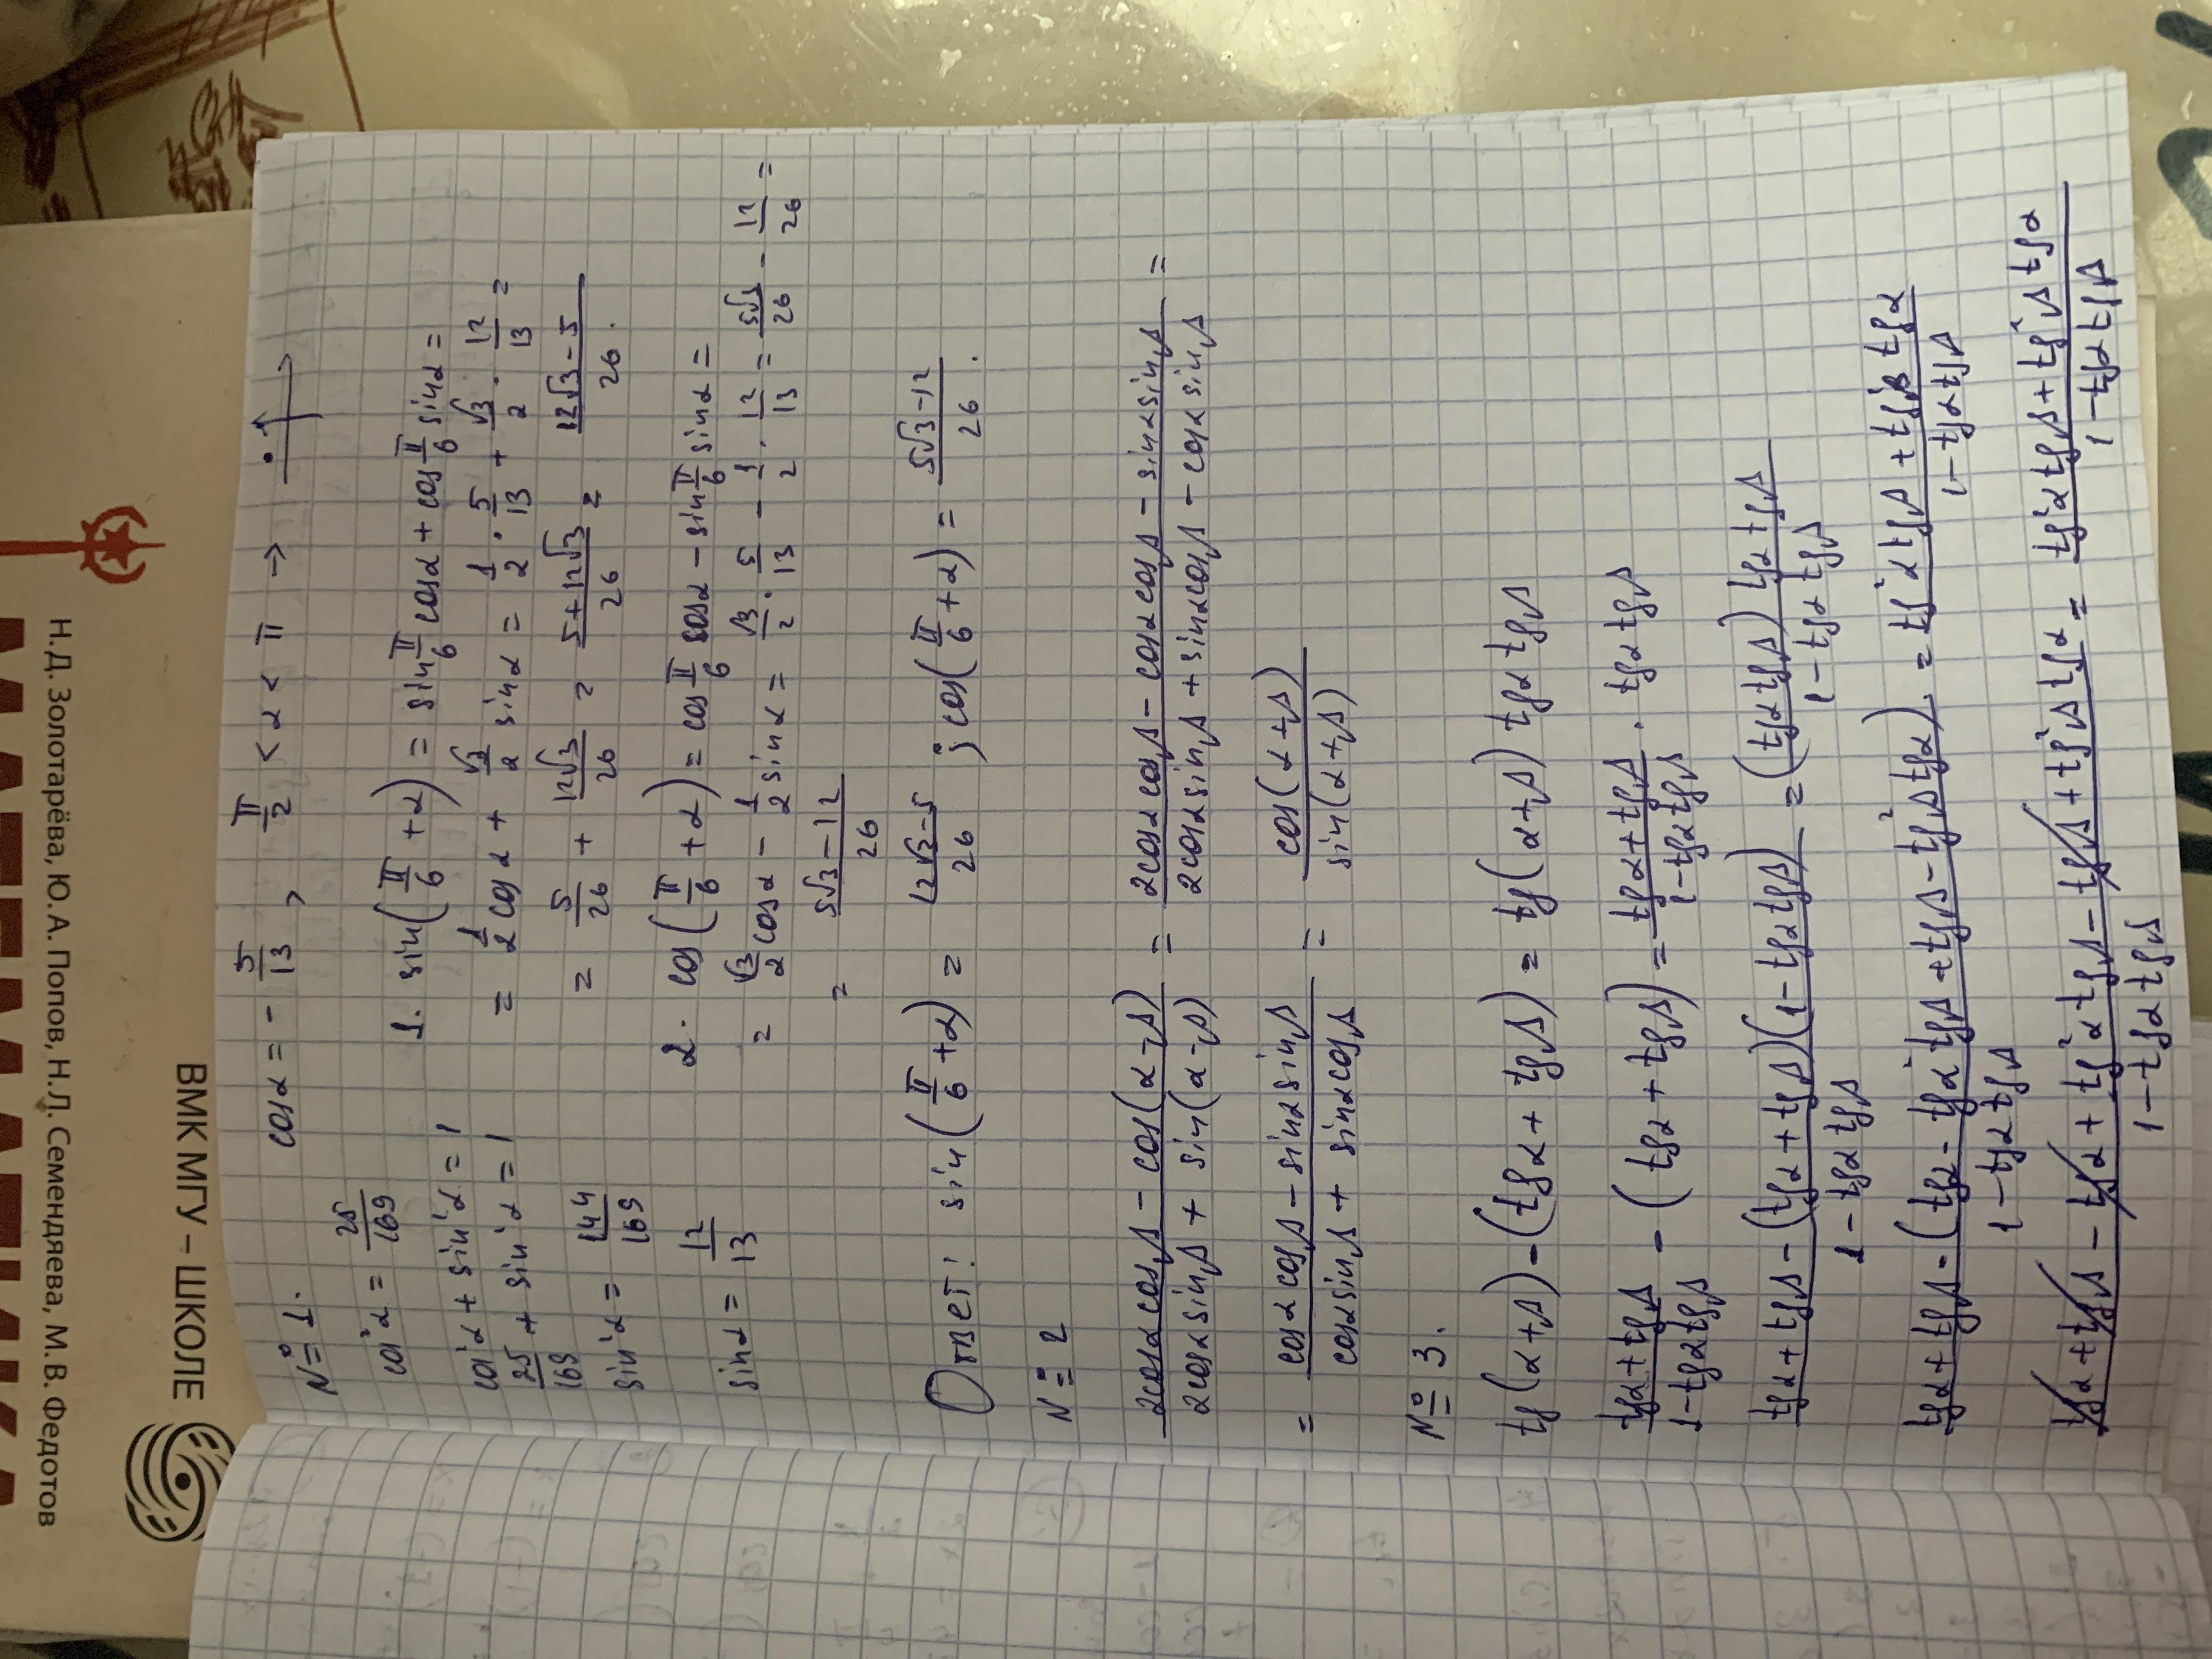 Н.Д. Золотарёва, Ю.А. Попов, Н.Л. Семендяева, М.В. Федотов
ВМК МГУ – ШКОЛЕ
№ 1. cosα = - 5/13 , π/2 < α < π →
cos²α = 25/169
cos²α + sin²α = 1
25/169 + sin²α = 1
sin²α = 144/169
sinα = 12/13
1. sin(π/6 + α) = sin π/6 cosα + cos π/6 sinα =
= 1/2 cosα + √3/2 sinα = 1/2 · 5/13 + √3/2 · 12/13 =
= 5/26 + 12√3/26 = 5+12√3/26 = 12√3-5/26.
2. cos(π/6 + α) = cos π/6 cosα - sin π/6 sinα =
= √3/2 cosα - 1/2 sinα = √3/2 · 5/13 - 1/2 · 12/13 = 5√3/26 - 12/26 =
= 5√3-12/26
Ответ: sin(π/6 + α) = 12√3-5/26 ; cos(π/6 + α) = 5√3-12/26.
№ 2
2cosα cosβ - cos(α-β)/2cosα sinβ + sin(α-β) = 2cosα cosβ - cosα cosβ - sinα sinβ/2cosα sinβ + sinα cosβ - cosα sinβ =
= cosα cosβ - sinα sinβ/cosα sinβ + sinα cosβ = cos(α+β)/sin(α+β)
№ 3.
tg(α+β) - (tgα + tgβ) = tg(α+β) tgα tgβ
tgα + tgβ/1-tgα tgβ - (tgα + tgβ) = tgα + tgβ/1-tgα tgβ · tgα tgβ
tgα + tgβ - (tgα + tgβ)(1 - tgα tgβ)/1 - tgα tgβ = (tgα tgβ) tgα + tgβ/1 - tgα tgβ
tgα + tgβ - (tgα - tg²α tgβ + tgβ - tg²β tgα)/1 - tgα tgβ = tg²α tgβ + tg²β tgα/1 - tgα tgβ
tgα + tgβ - tgα + tg²α tgβ - tgβ + tg²β tgα/1 - tgα tgβ = tg²α tgβ + tg²β tgα/1 - tgα tgβ